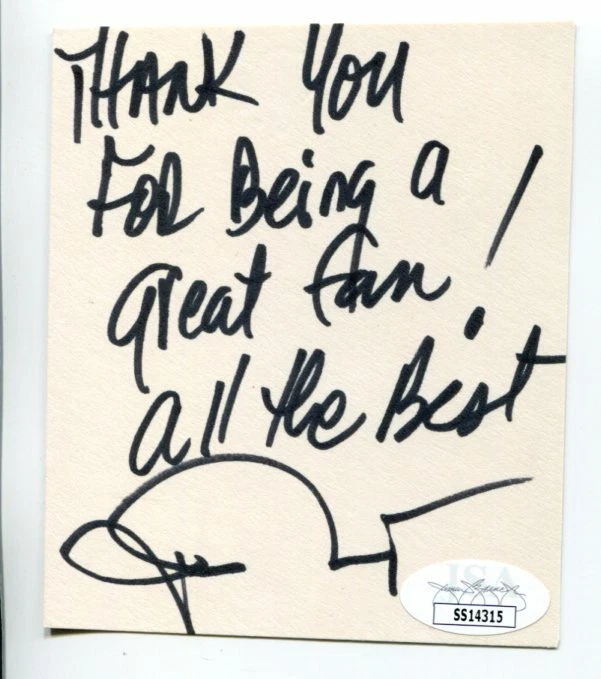 THANK YOU
FOR Being a
great fan!
all the Best
JSA
SS14315